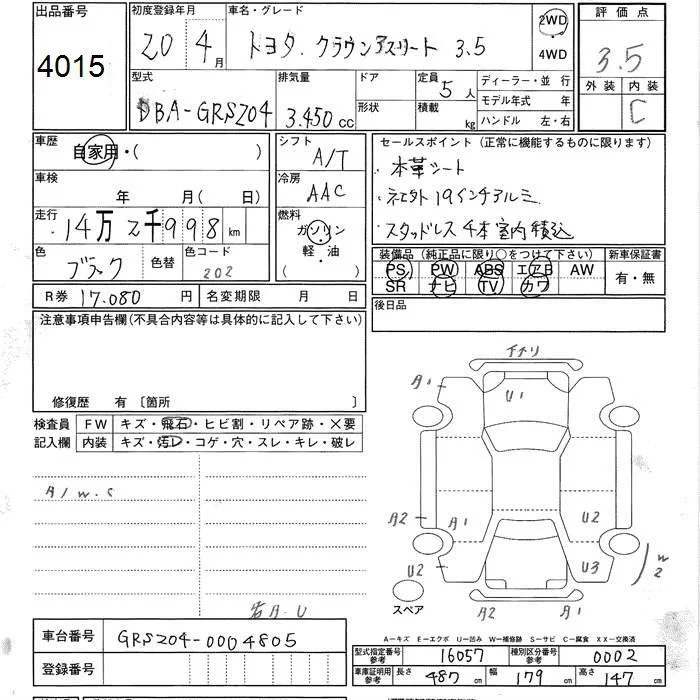 出品番号
4015
初度登録年月
20 4月
車名・グレード
トヨタ.クラウンアスリート 3.5
2WD
4WD
評価点
3.5
外装 内装
C
型式
DBA-GRS204
排気量
3.450cc
ドア
形状
定員
5人
積載
kg
ディーラー・並行
モデル年式 年
ハンドル 左・右
車歴
自家用・( )
車検
年 月( 日)
走行
14万2千998km
色
ブラック
色替
色コード
202
シフト
A/T
冷房
AAC
燃料
ガソリン
軽・油
( )
セールスポイント (正常に機能するものに限ります)
・本革シート
・社外19インチアルミ
・スタッドレス4本室内積込
装備品(純正品に限り○をつけて下さい)
PS PW ABS エアB AW
SR ナビ TV カワ
新車保証書
有・無
R券 17.080円
名変期限 月 日
後日品
注意事項申告欄(不具合内容等は具体的に記入して下さい)
修復歴 有〔箇所 〕
検査員
記入欄
FW キズ・飛石・ヒビ割・リペア跡・×要
内装 キズ・汚レ・コゲ・穴・スレ・キレ・破レ
A/W.C
A.U
A1
U1
A2
A1
U2
U2
U3
W2
スペア
A2
A1
A-キズ E-エクボ U-凹み W-補修跡 S-サビ C-腐食 XX-交換済
車台番号
GRS204-0004805
登録番号
型式指定番号
参考
16057
種別区分番号
参考
0002
車庫証明用
参考
長さ 487cm
幅 179cm
高さ 147cm